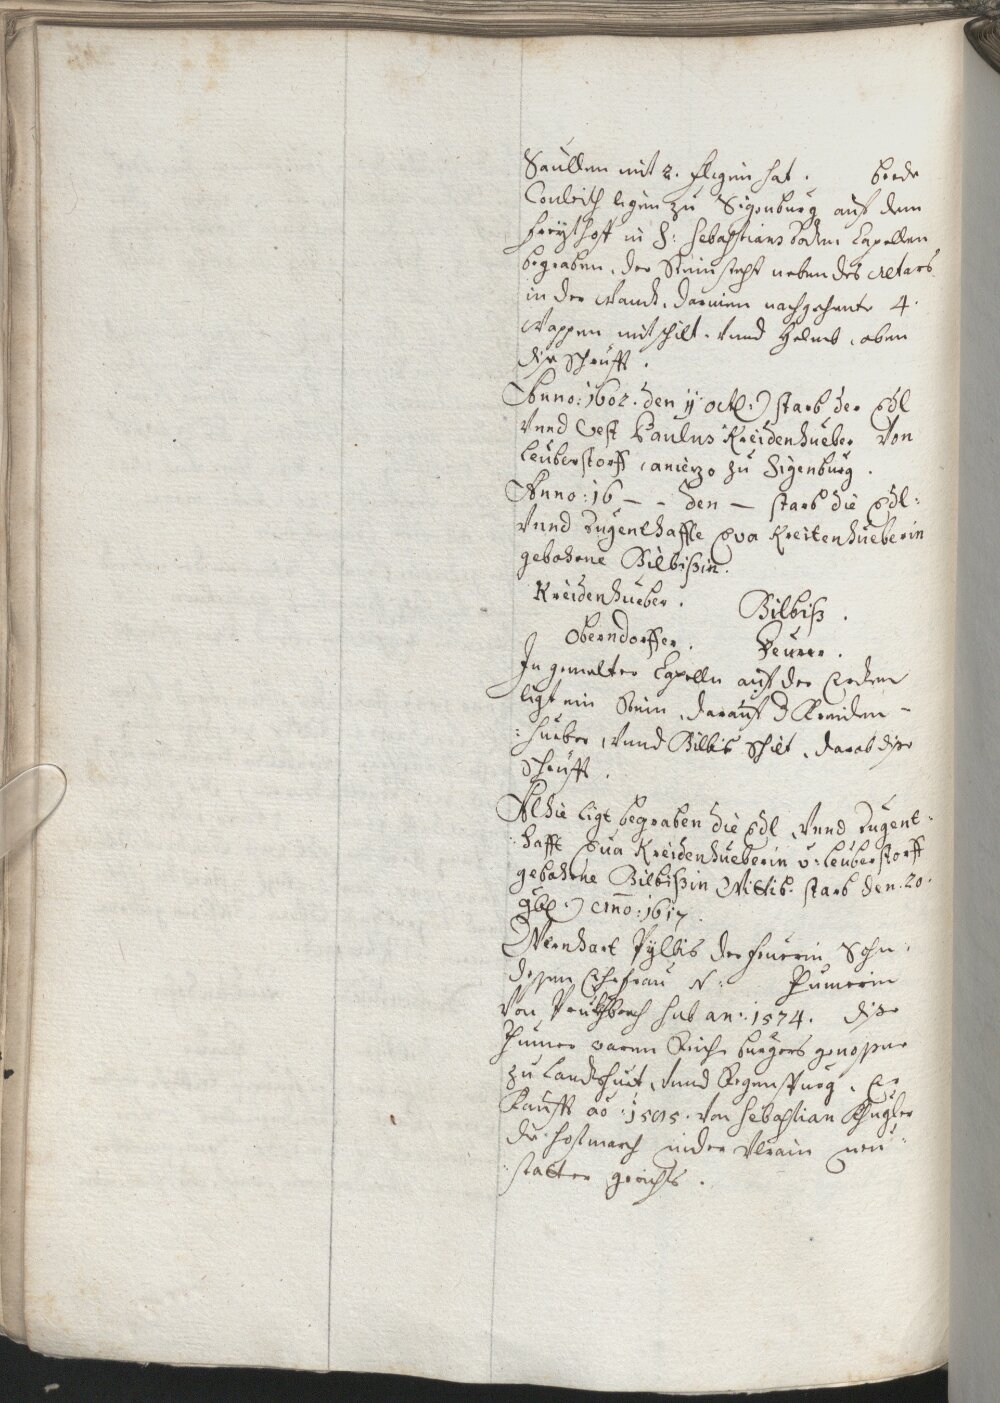 Saullen mit 2. flügen hat. beede
Conleith ligen zu Sigenburg auf dem
freythoff in S: Sebastians Capellen
begraben, der Stein steht neben des Altars
in der Wandt, darinen nachgehente 4.
Wappen mit schilt vnnd Helmb, oben
dise Schrufft.
Anno: 1602. den 11 octb: starb der Edl
vnnd Vest Paulus Kreidenhueber von
Leuberstorff aniezo zu Sigenburg.
Anno: 16 - - den — starb die Edl:
vnnd Tugenthaffte Eva Kreitenhueberin
gebohrne Bilbißin.
Kreidenhueber. Bilbiß.
Oberndorffer. Feurer.
In gemelter Capelln auf der Erden
ligt ein Stein, darauf d Kreiden-
:hueber, vnnd Bilbis Schilt, darob dise
Schrufft.
Alhie ligt begraben die Edl, vnnd Tugent:
:hafft Eua Kreidenhueberin v: Leuberstorff
gebohrne Bilbißin Wittib. starb den 20.
9bl: Anno: 1617.
Wernhart Pylbis der Feurerin Sohn.
dessen Ehefrau N: Pumerin
von hat an: 1574. dise
Pumer waren burgers genossne
zu Landshuet, vnnd Regenspurg. Er
Kaufft ao: 1595. von Sebastian Khugler
die hofmarch in der neu:
:statter gerichts.